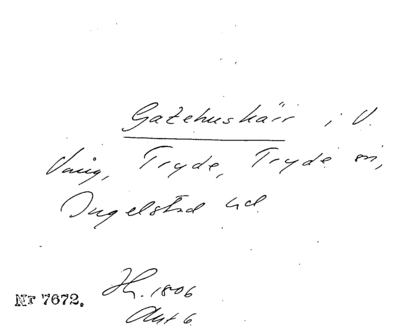 Gatehuskärr i V.
Vång, Tryde, Tryde sn,
Ingelstad hd.
Nr 7672.
H. 1806
Akt 6